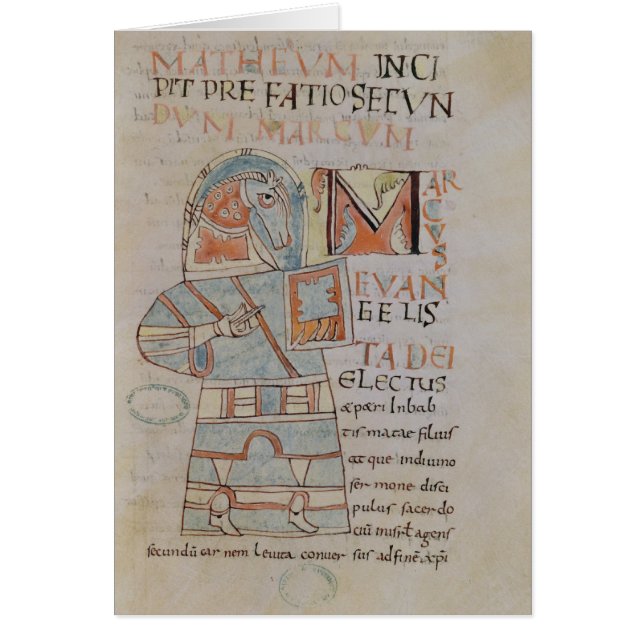 MATHEUM INCI
PIT PREFATIO SECUN
DUM MARCUM
MARCUS
EUAN
GELIS
TA DEI
ELECTUS
&p&ri Inbab
tis matae filius
atque indiuino
sermone disci
pulus sacerdo
ciū inisrł agens
secundū carnem leuita conuersus adfinē &pi